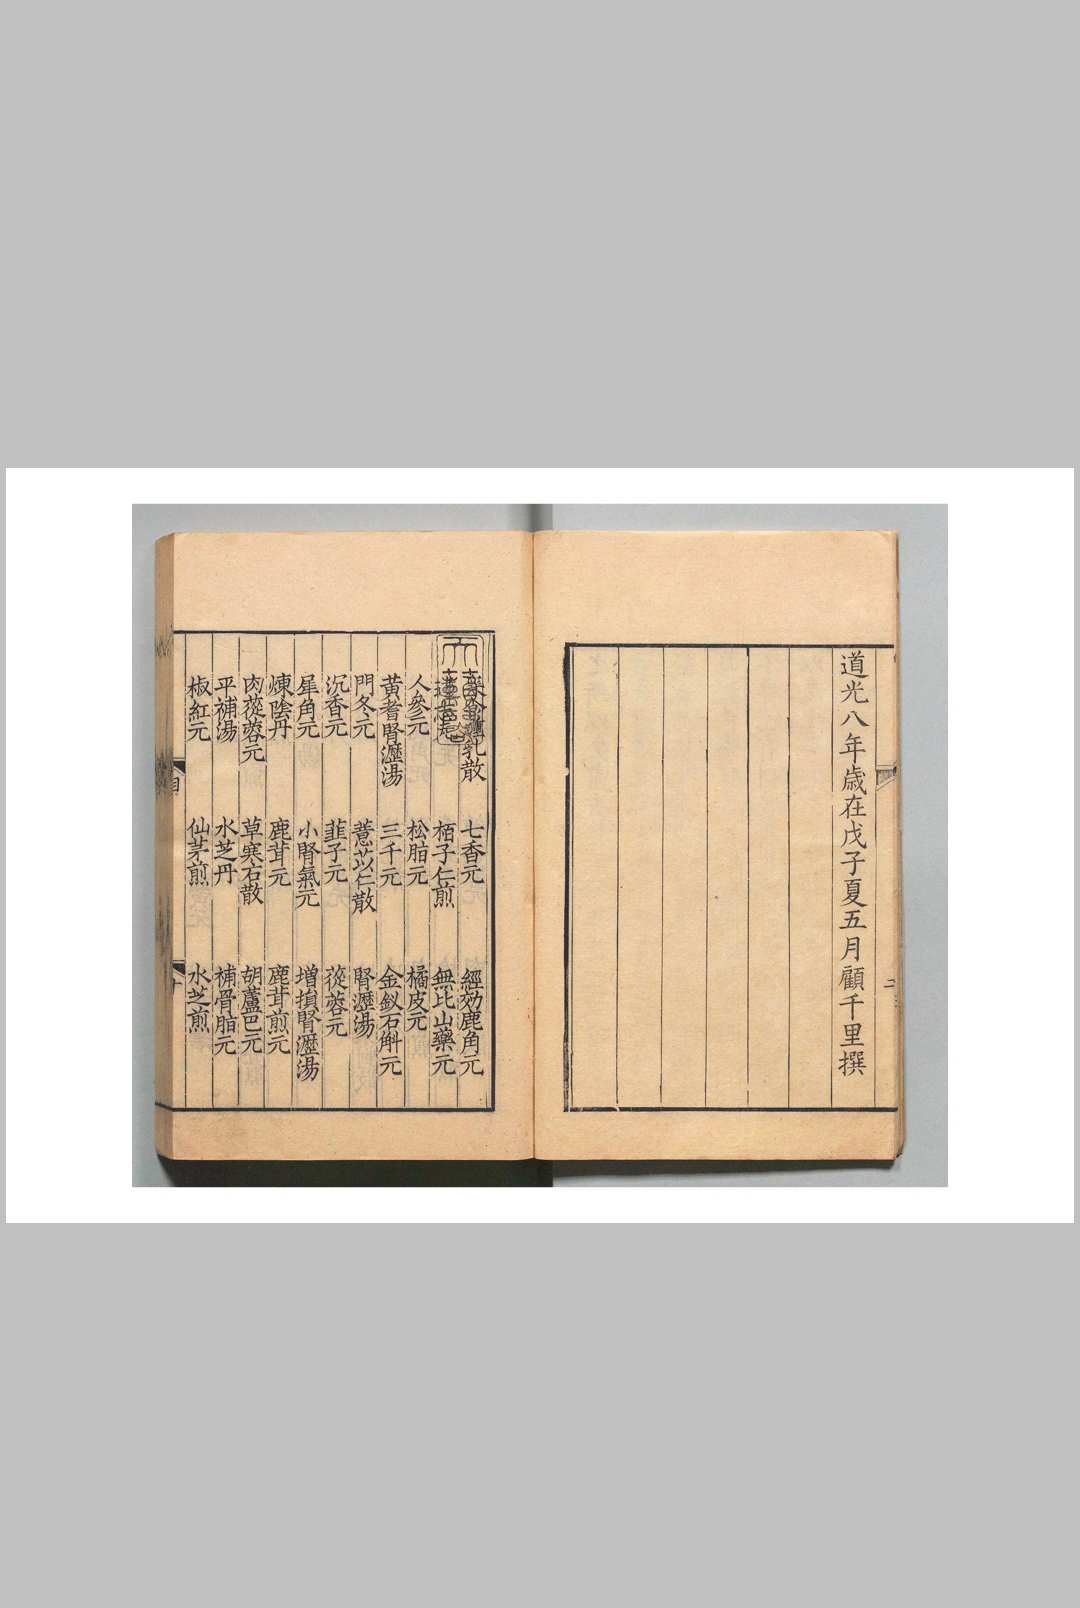 道光八年歲在戊子夏五月顧千里撰
二
乳散 七香元 經効鹿角元
栢子仁煎 無比山藥元
人參元 松脂元 橘皮元
黃耆腎瀝湯 三千元 金釵石斛元
門冬元 薏苡仁散 腎瀝湯
沉香元 韭子元 蓯蓉元
犀角元 小腎氣元 增損腎瀝湯
煉陰丹 鹿茸元 鹿茸煎元
肉蓯蓉元 草寒石散 胡蘆巴元
平補湯 水芝丹 補骨脂元
椒紅元 仙茅煎 水芝煎
目
十